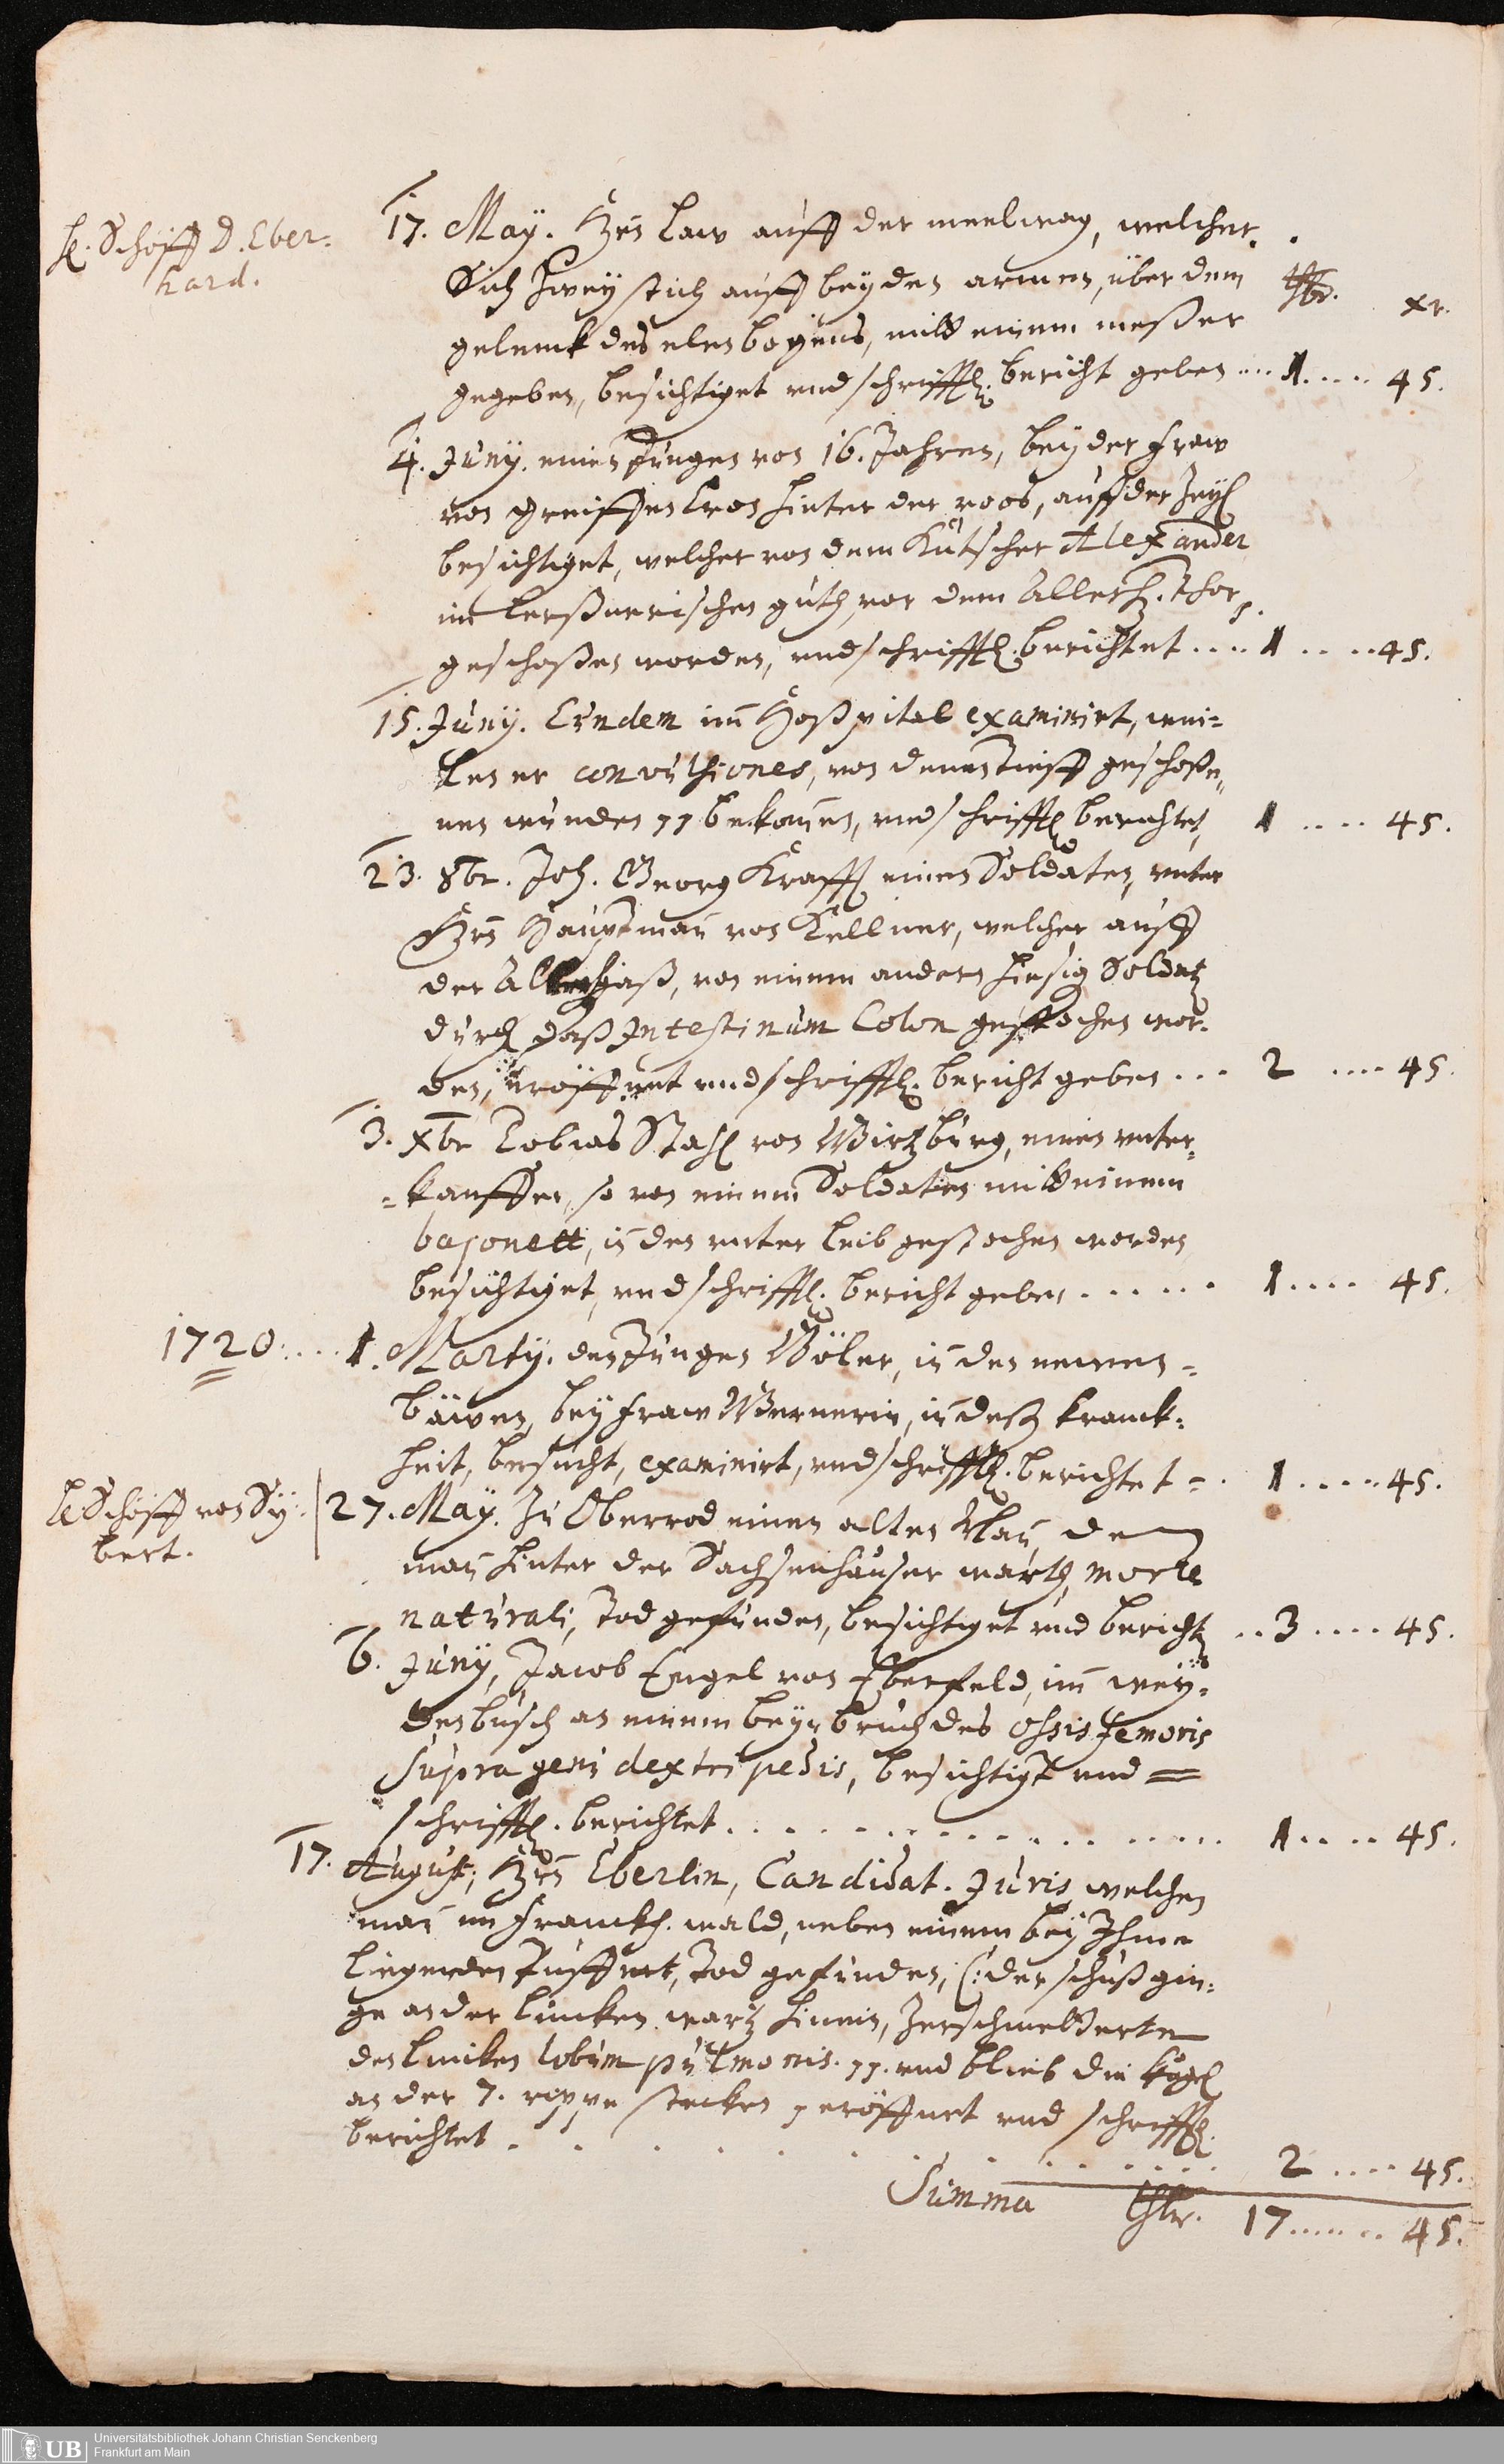 H. Schöff D. Eber-
hard.
17. May. Hrn Law auff der meelwag, welcher
Sich zwey stich auff beyden armen, über dem
thlr. xr.
gelenck des elenbogens, mitt einem meßer
gegeben, besichtiget und schrifftl. bericht geben ... 1 .... 45.
4. Juny. einen Jungen von 16. Jahren, bey der fraw
von hinter der roos, auff der Zeyl
besichtiget, welcher von dem Kutscher Alexander
im Lerßnerischen guth, vor dem Allerh. thor
geschoßen worden, und schrifftl. berichtet .... 1 .... 45.
15. Juny. Eundem im Hoßpital examinirt, wei-
len er convulsiones, von denen tieff geschoße-
nen wunden pp bekomen, und schrifftl berichtet, 1 .... 45.
23. 8br. Joh. Georg Krafft einen Soldaten, unter
Hrn Hauptman von Kellner, welcher auff
der Allerhgaß, von einem andern hiesig Soldat
durch daß Intestinum Colon gestochen wor-
den, eröffnet und schrifftl. bericht geben ... 2 .... 45.
3. Xbr Tobias Stahl von Wirtzburg, einen unter-
-kauffer, so von einem Soldaten mitt einem
bajonett, in den unter leib gestochen worden
besichtiget, und schrifftl. bericht geben ...... 1 .... 45.
1720 .... 1. Marty. den Jungen Böler, in den newen-
bäwen, bey fraw Wernerin, in deß kranck-
heit, besucht, examinirt, und schrifftl. berichtet - . 1 ..... 45.
H Schöff von Sy-
bert.
27. May. Zu Oberrod einen alten Man, den
man hinter der Sachsenhäuser warth, morte
naturali, tod gefunden, besichtiget und bericht .. 3 .... 45.
6. Juny, Jacob Engel von Elberfeld, im wey-
denbusch an einem beyn bruch des ossis femoris
supra genu dextri pedis, besichtigt und =
schrifftl. berichtet .................. 1 .... 45.
17. August, Hrn Eberlin, Candidat. Juris, welchen
man im Franckf. wald, neben einem bey Ihme
liegenden Puffert, tod gefunden, (: der schuß gin-
ge an der lincken wartz hinein, zerschmetterte
den lincken lobum pulmonis. pp. und blieb die kugel
an der 7. rippe stecken, eröffnet und schrifftl.
berichtet . . . . . . . . . . . 2 .... 45.
Summa thlr. 17 ....... 45.
Universitätsbibliothek Johann Christian Senckenberg
Frankfurt am Main
UB